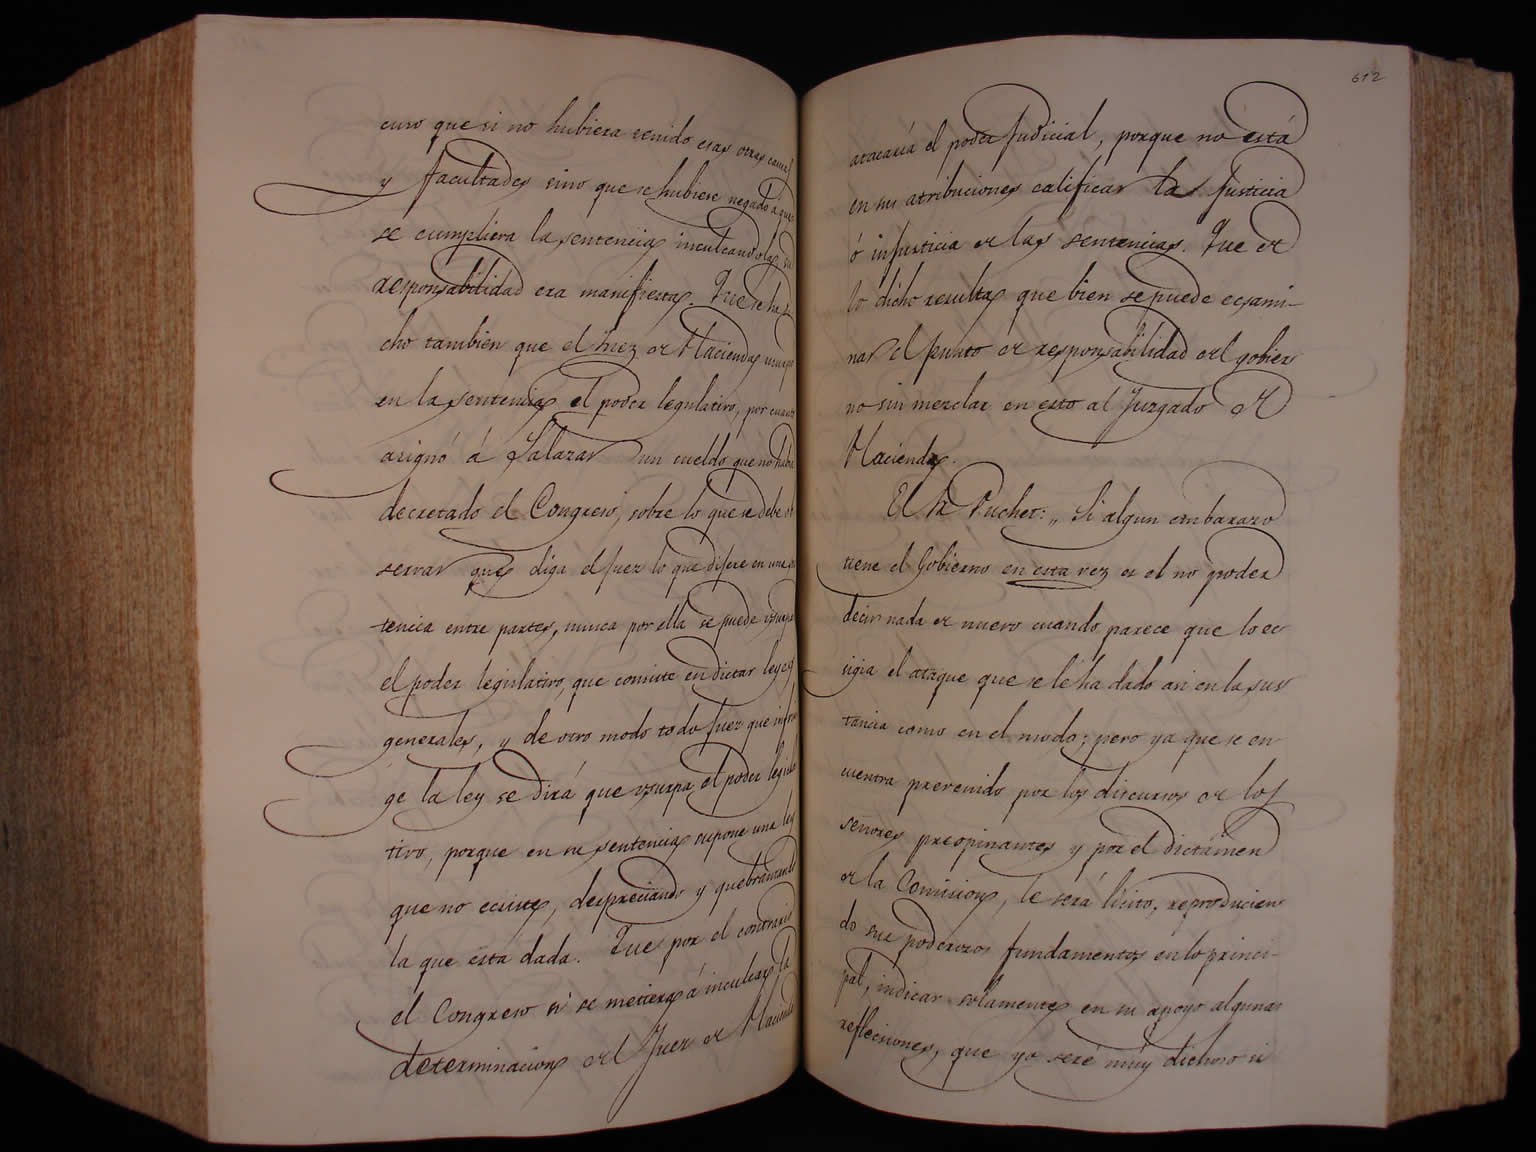 curo que si no hubiera tenido esas otras
y facultades sino que se hubiese negado á que
se cumpliera la sentencia inculcandola su
responsabilidad era manifiesta. Que se ha di
cho tambien que el Juez de Hacienda usurpó
en la sentencia el poder legislativo, por cuanto
asignó á Salazar un sueldo que no habia
decretado el Congreso, sobre lo que se debe ob
servar que diga el Juez lo que dijere en una sen
tencia entre partes, nunca por ella se puede usurpar
el poder legislativo, que consiste en dictar leyes
generales, y de otro modo todo Juez que infrin
ge la ley se dirá que usurpa el poder legisla
tivo, porque en su sentencia supone una ley
que no ecsiste, despreciando y quebrantando
la que está dada. Que por el contrario
el Congreso si se metiera á inculcar la
determinacion del Juez de Hacienda
612
atacaría el poder Judicial, porque no está
en sus atribuciones calificar la Justicia
ó injusticia de las sentencias. Que de
lo dicho resulta que bien se puede ecsami-
nar el punto de responsabilidad del gobier
no sin mezclar en esto al Juzgado de
Hacienda.
El Sr. Puchet: „ Si algun embarazo
tiene el Gobierno en esta vez es el no poder
decir nada de nuevo cuando parece que lo ec
sigia el ataque que se le ha dado asi en la sus
tancia como en el modo; pero ya que se en
cuentra prevenido por los discursos de los
señores preopinantes y por el dictámen
de la Comision, le será licito, reproducien
do sus poderosos fundamentos en lo princi-
pal, indicar solamente en su apoyo algunas
reflecsiones, que yo seré muy dichoso si